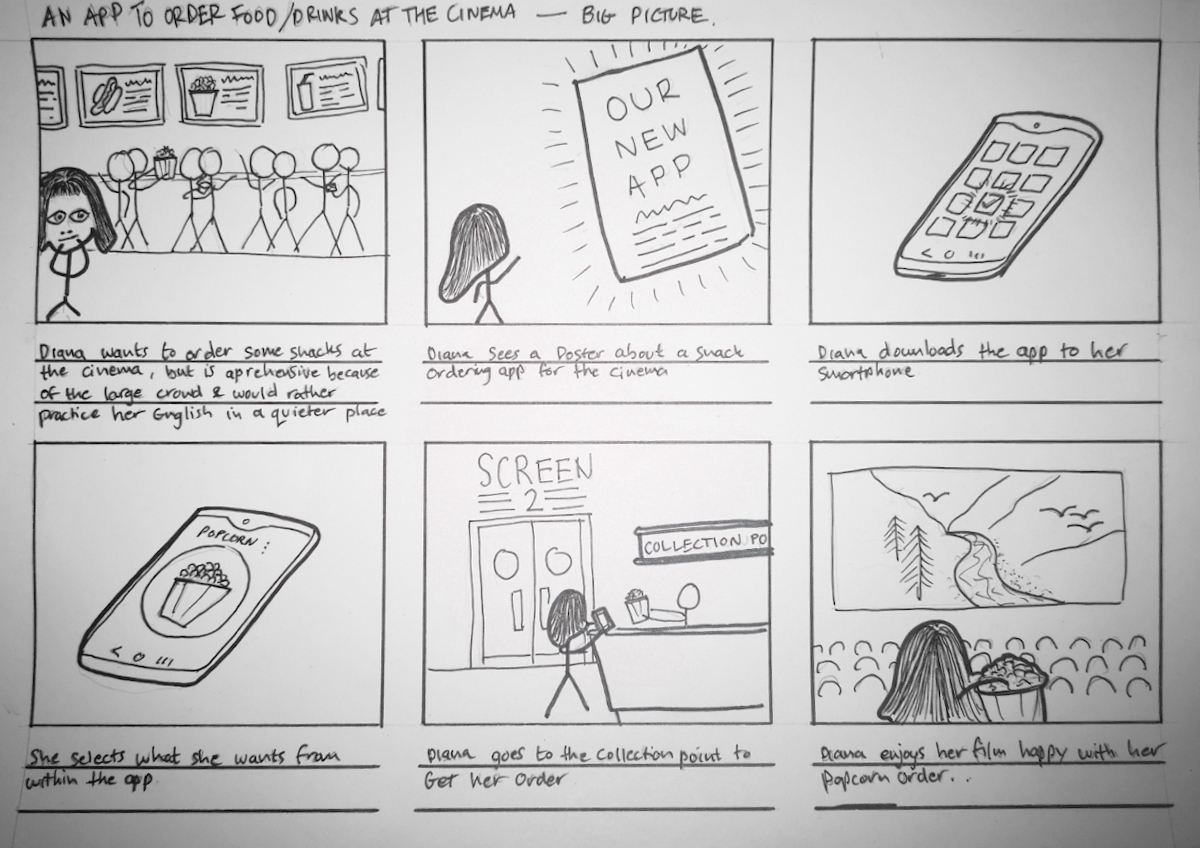 AN APP TO ORDER FOOD/DRINKS AT THE CINEMA — BIG PICTURE.
OUR
NEW
APP
Diana wants to order some snacks at
the cinema, but is aprehensive because
of the large crowd & would rather
practice her English in a quieter place
Diana sees a Poster about a snack
ordering app for the cinema
Diana downloads the app to her
Smartphone
POPCORN
SCREEN
2
COLLECTION PO
She selects what she wants from
within the app.
Diana goes to the collection point to
Get her order
Diana enjoys her film happy with her
Popcorn order...